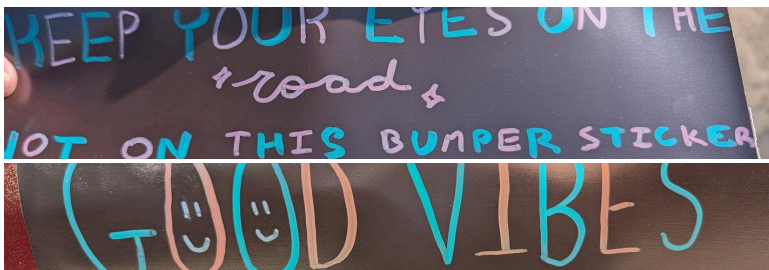 KEEP YOUR EYES ON THE
road
NOT ON THIS BUMPER STICKER
GOOD VIBES